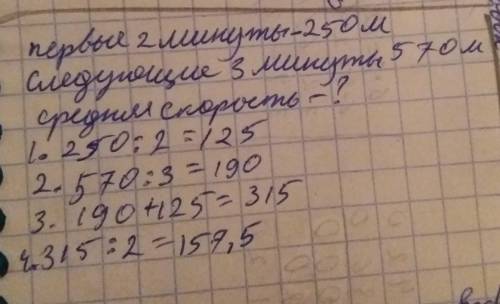 первые 2 минуты-250м
следующие 3 минуты 570м
средняя скорость-?
1. 250:2=125
2. 570:3=190
3. 190+125=315
4. 315:2=157,5